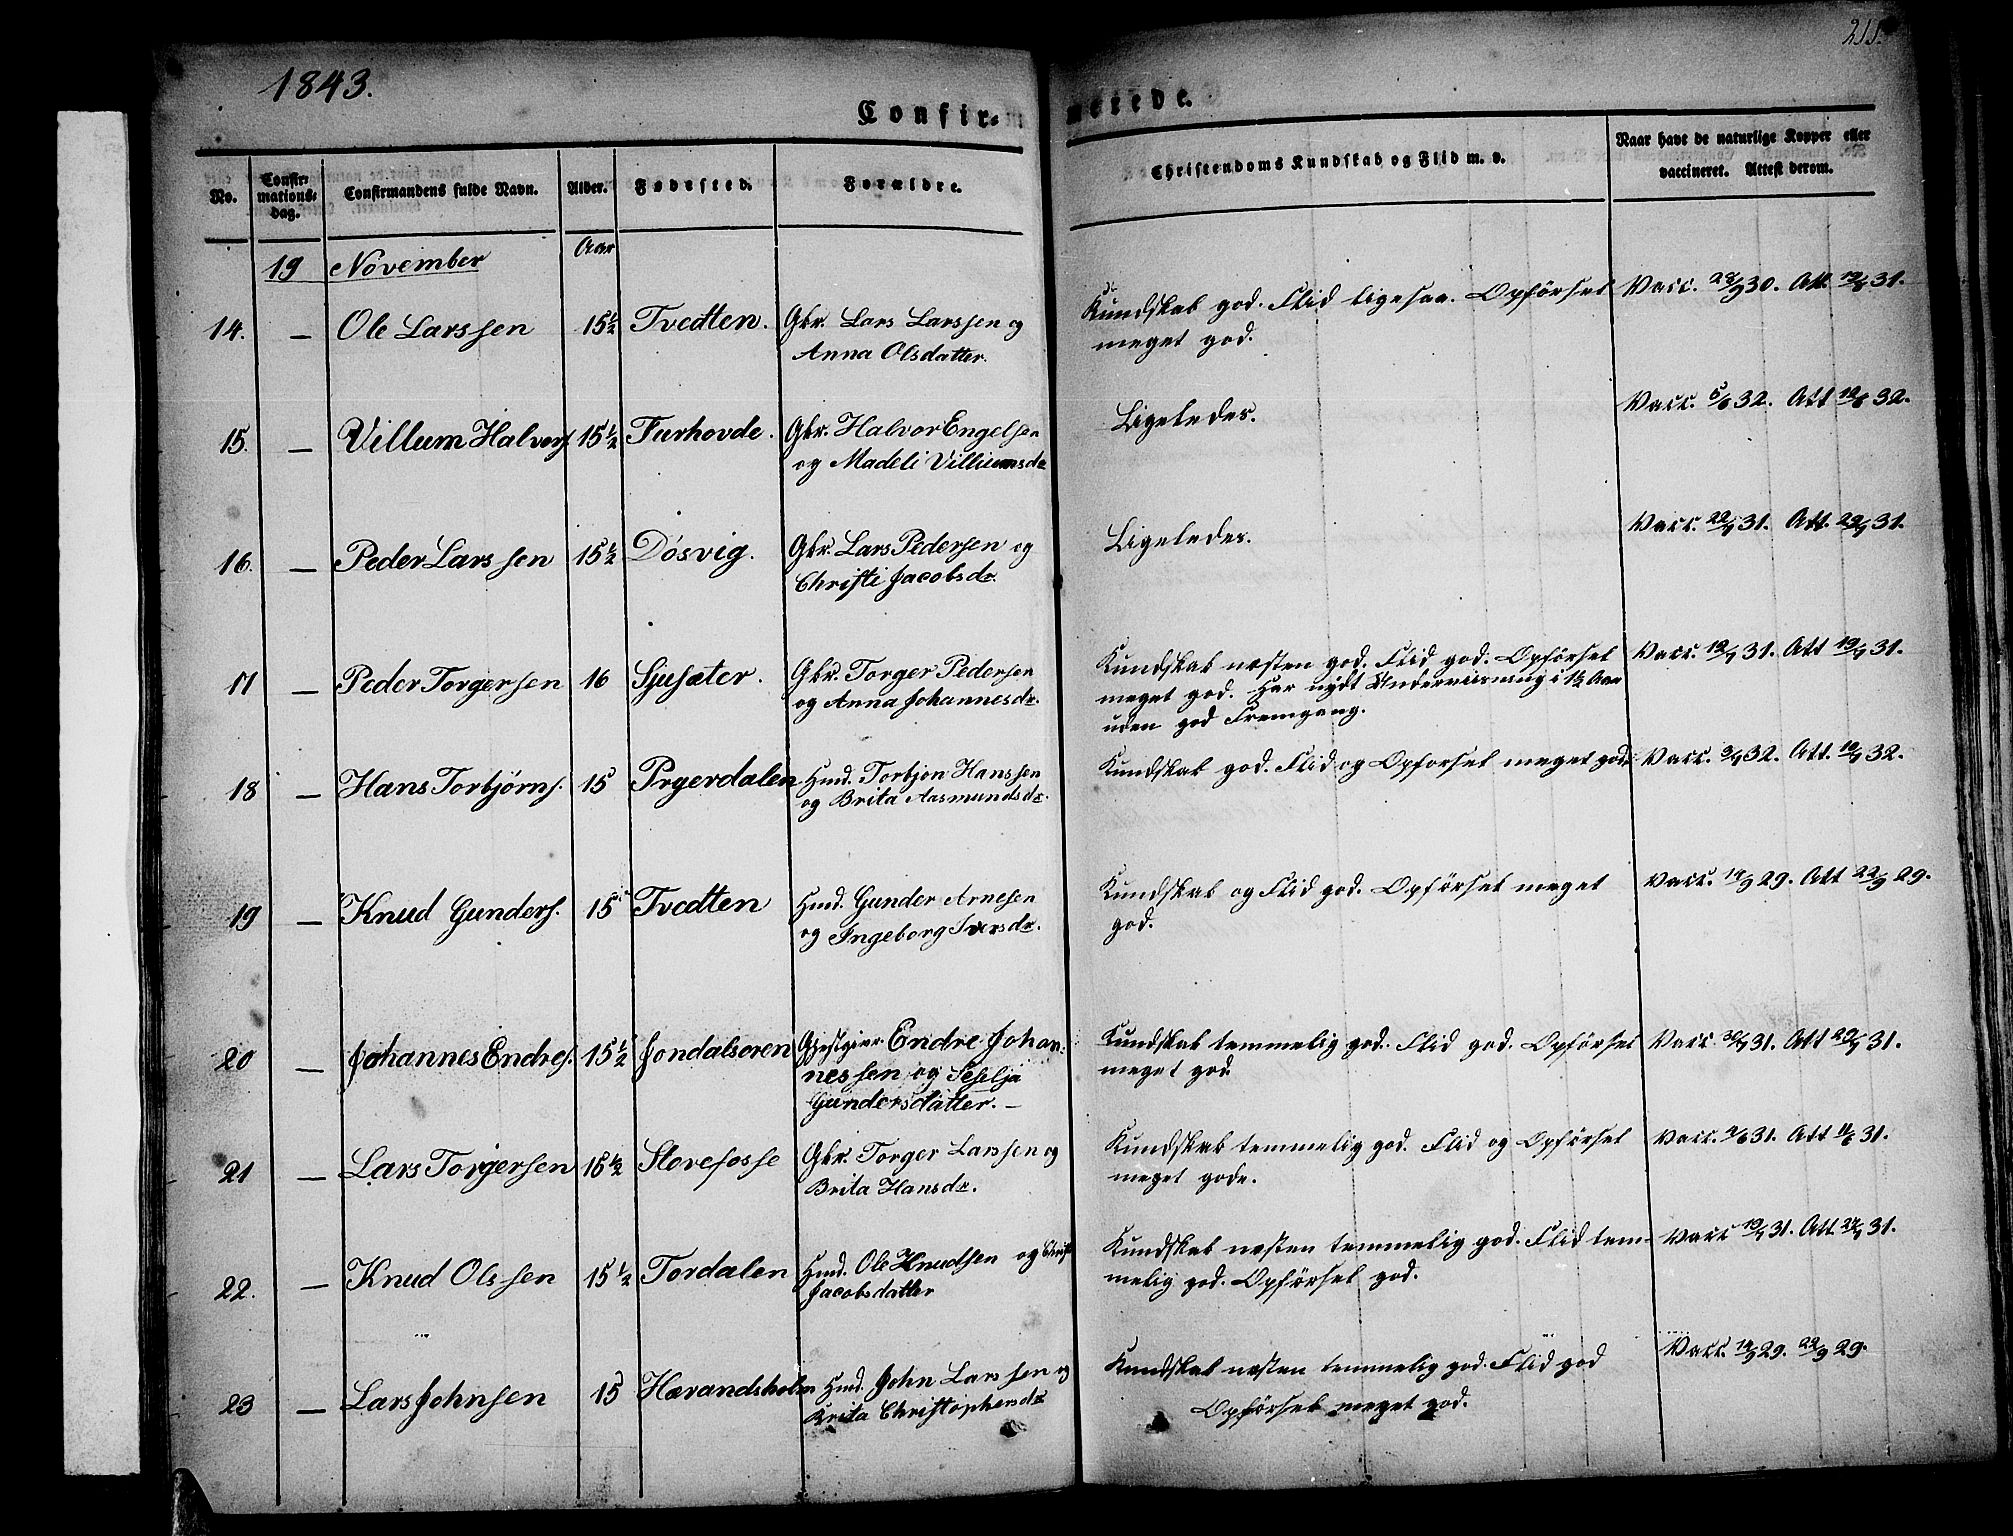 1843.
211.
Confir-
merede.
No.
Confir-
mations-
dag.
Confirmandens fulde Navn.
Alder.
Fødested.
Forældre.
Christendoms Kundskab og Flid m. v.
Naar have de naturlige Kopper eller
vaccineret. Attest derom.
19 November Aar
14. — Ole Larssen 15½ Tvedten. Gbr. Lars Larssen og
Anna Olsdatter.
Kundskab god. Flid ligesaa. Opførsel
meget god.
Vacc. 28/9 30. Att. 12/6 31.
15. — Villum Halvors. 15½ Furhovde. Gbr. Halvor Engelsen
og Madeli Villiumsdr
Ligeledes.
Vacc. 5/6 32. Att 12/6 32.
16. — Peder Larssen 15½ Døsvig. Gbr. Lars Pedersen og
Christi Jacobsdr.
Ligeledes.
Vacc. 22/7 31. Att. 29/7 31.
17 — Peder Torgersen 16 Sjusæter. Gbr. Torger Pedersen
og Anna Johannesdr.
Kundskab næsten god. Flid god. Opførsel
meget god. Har nydt Underviisning i 1½ Aar
uden god Fremgang.
Vacc. 12/7 31. Att 19/7 31.
18 — Hans Torbjørns. 15 Prgerdalen Hmd. Torbjon Hanssen
og Brita Aasmundsdr.
Kundskab god. Flid og Opforsel meget god.
Vacc. 3/7 32. Att. 10/7 32.
19 — Knud Gunders. 15 Tvedten Hmd. Gunder Arnesen
og Ingeborg Iversdr.
Kundskab og Flid god. Opførsel meget
god.
Vacc. 14/9 29. Att 22/9 29.
20 — Johannes Endres. 15½ Jondalsøren Gjestgiver Endre Johan-
nessen og Seselja
Gundersdatter. —
Kundskab temmelig god. Flid god. Opførsel
meget god
Vacc 31. Att 31.
21 — Lars Torgersen 16½ Storefosse Gbr. Torger Larssen og
Brita Hansdr.
Kundskab temmelig god. Flid og Opførsel
meget gode.
Vacc. 4/6 31. Att 11/6 31.
22. — Knud Olssen 15½ Tordalen Hmd. Ole Knudsen og Christi
Jacobsdatter
Kundskab næsten temmelig god. Flid tem-
melig god. Opførsel god.
Vacc 19/7 31. Att 27/7 31.
23 — Lars Johnsen 15 Hærandsholm Hmd. John Larssen og
Brita Christophersdr
Kundskab næsten temmelig god. Flid god
Opførsel meget god.
Vacc. 14/9 29. 22/9 29.